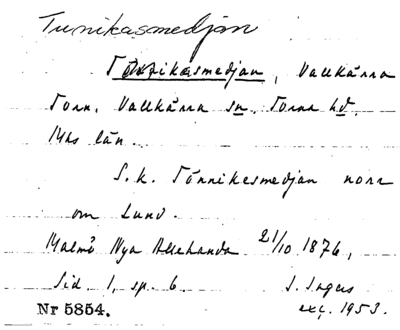 Tunikasmedjan
Tunnikesmedjan, Vallkärra
Torn, Vallkärra sn, Torna hd
Mhs län.
S.k. Tännikesmedjan norr
om Lund.
Malmö Nya Allehanda 21/10 1876,
Sid. 1, sp. 6. I. Ingers
Nr 5854. exc. 1953.